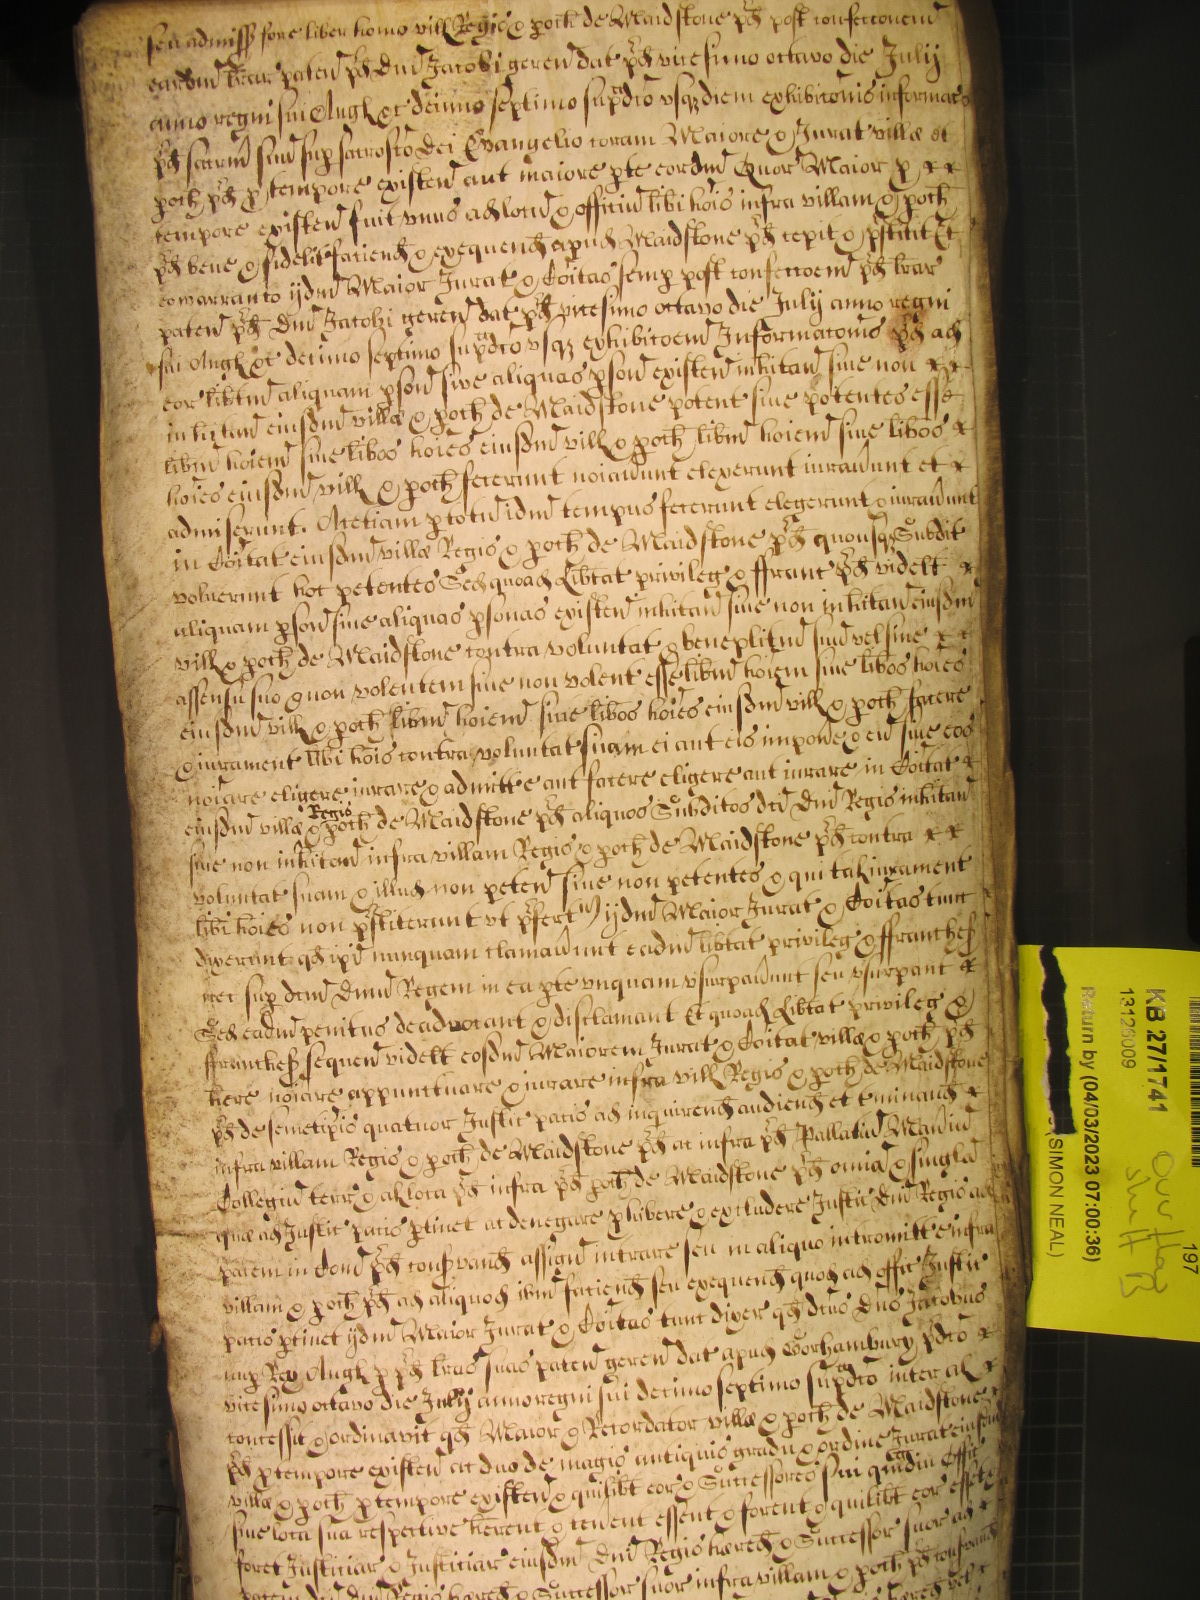 seu admiss fore liber homo vill Regis & poch de Maidstone pd post confecconem
eardm lrar paten pd Dni Jacobi geren dat pd vicesimo octavo die Julij
anno regni sui Angl &c decimo septimo supadco vsq diem exhibiconis informacois
pd sacrm suu sup sacrosco Dei Evangelio coram Maiore & Jurat villae et
poch pd p tempore existen aut maiore pte eordm Quor Maior p x x
tempore existen fuit vnus ad locu & officiu libi hois infra villam & poch
pd bene & fidelit faciend & exequend apud Maidstone pd cepit & pstitit Et
eo warranto ijdm Maior Jurat & Coitas semp post confeccoem pd lrar
paten pd Dni Jacobi geren dat pd vicesimo octavo die Julij anno regni
sui Angl &c decimo septimo supadco vsq exhibicoem Informaconis pd ad
eor libitm aliquam pson sive aliquas pson existen inhitan sive non x x
inhitan eiusdm villae & poch de Maidstone petent sive petentes esse
libm hoiem sive libos hoies eiusdm vill & poch libm hoiem sive libos x
hoies eiusdm vill & poch fecerunt noiaverunt elexerunt iuraverunt et x
admiserunt. Acetiam p totu idm tempus fecerunt elegerunt & iuraverunt
in Coitat eiusdm villae Regis & poch de Maidstone pd quousq Subdit
voluerunt hoc petentes Sed quoad Libtat privileg & ffranc pd videlt x
aliquam pson sive aliquas psonas existen inhitan sive non inhitan eiusdm
vill & poch de Maidstone contra voluntat & beneplitm suu vel sine x x
assensu suo & non volentem sive non volent esse libm hoiem sive libos hoies
eiusdm vill & poch libm hoiem sive libos hoies eiusdm vill & poch facere
& iurament libi hois contra voluntat suam ei aut eis impone & eu sive eos
noiare eligere iurare & admitte aut facere eligere aut iurare in Coitat x
eiusdm villae Regis & poch de Maidstone pd aliquos Subditos dci Dni Regis inhitan
sive non inhitan infra villam Regis & poch de Maidstone pd contra x x
voluntat suam & illud non peten sive non petentes & qui tal iurament
libi hoies non pstiterunt vt pfert ijdm Maior Jurat & Coitas tunc
dixerunt qd ipi nunquam clamaverunt eadm libtat privileg & ffranches
nec sup dcm Dnm Regem in ea pte vnquam vsurpaverunt seu vsurpant x
Sed eadm penitus deadvocant & disclamant Et quoad Libtat privileg &
ffranches sequen videlt eosdm Maiorem Jurat & Coitat villae & poch pd
here noiare appunctuare & iurare infra vill Regis & poch de Maidstone
pd de semetipis quatuor Justic pacis ad inquirend audiend et tminand x
infra villam Regis & poch de Maidstone pd ac infra pd Pallatiu Maniu
Collegiu terr & al loca pd infra pd poch de Maidstone pd omia & singla
quae ad Justic pacis ptinet ac denegare phibere & excludere Justic Dni Regis ad
pacem in Com pd consvand assign intrare seu in aliquo intromitte infra
villam & poch pd ad aliquod ibm faciend seu exequend quod ad offic Justic
pacis ptinet ijdm Maior Jurat & Coitas tunc dixer qd dcus Dns Jacobus
nup Rex Angl p pd lras suas paten geren dat apud Gorhambury pdco x
vicesimo octavo die Julij anno regni sui decimo septimo supadco inter al x
concessit & ordinavit qd Maior & Recordator villae & poch de Maidstone
pd p tempore existen ac duo de magis antiquis gradu & ordine Jurat eiusdm
villae & poch p tempore existen & quilibt eor & Successores sui quamdiu Offic
sive loca sua respective herent & tenent essent & forent & quilibt eor esset &
foret Justiciar & Justiciar eiusdm Dni Regis hered & Successor suor ad x
pacem dci Dni Regis hered & Successor suor infra villam & poch pd consvand
KB 27/1741
13126009
Return by (04/03/2023 07:00:36)
(SIMON NEAL)
197